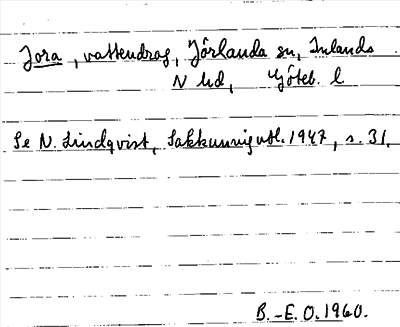 Jora, vattendrag, Jörlanda sn, Inlands
N hd, Göteb. l
Se N. Lindqvist, Sakkunnigutl. 1947, s. 31.
B.-E. O. 1960.